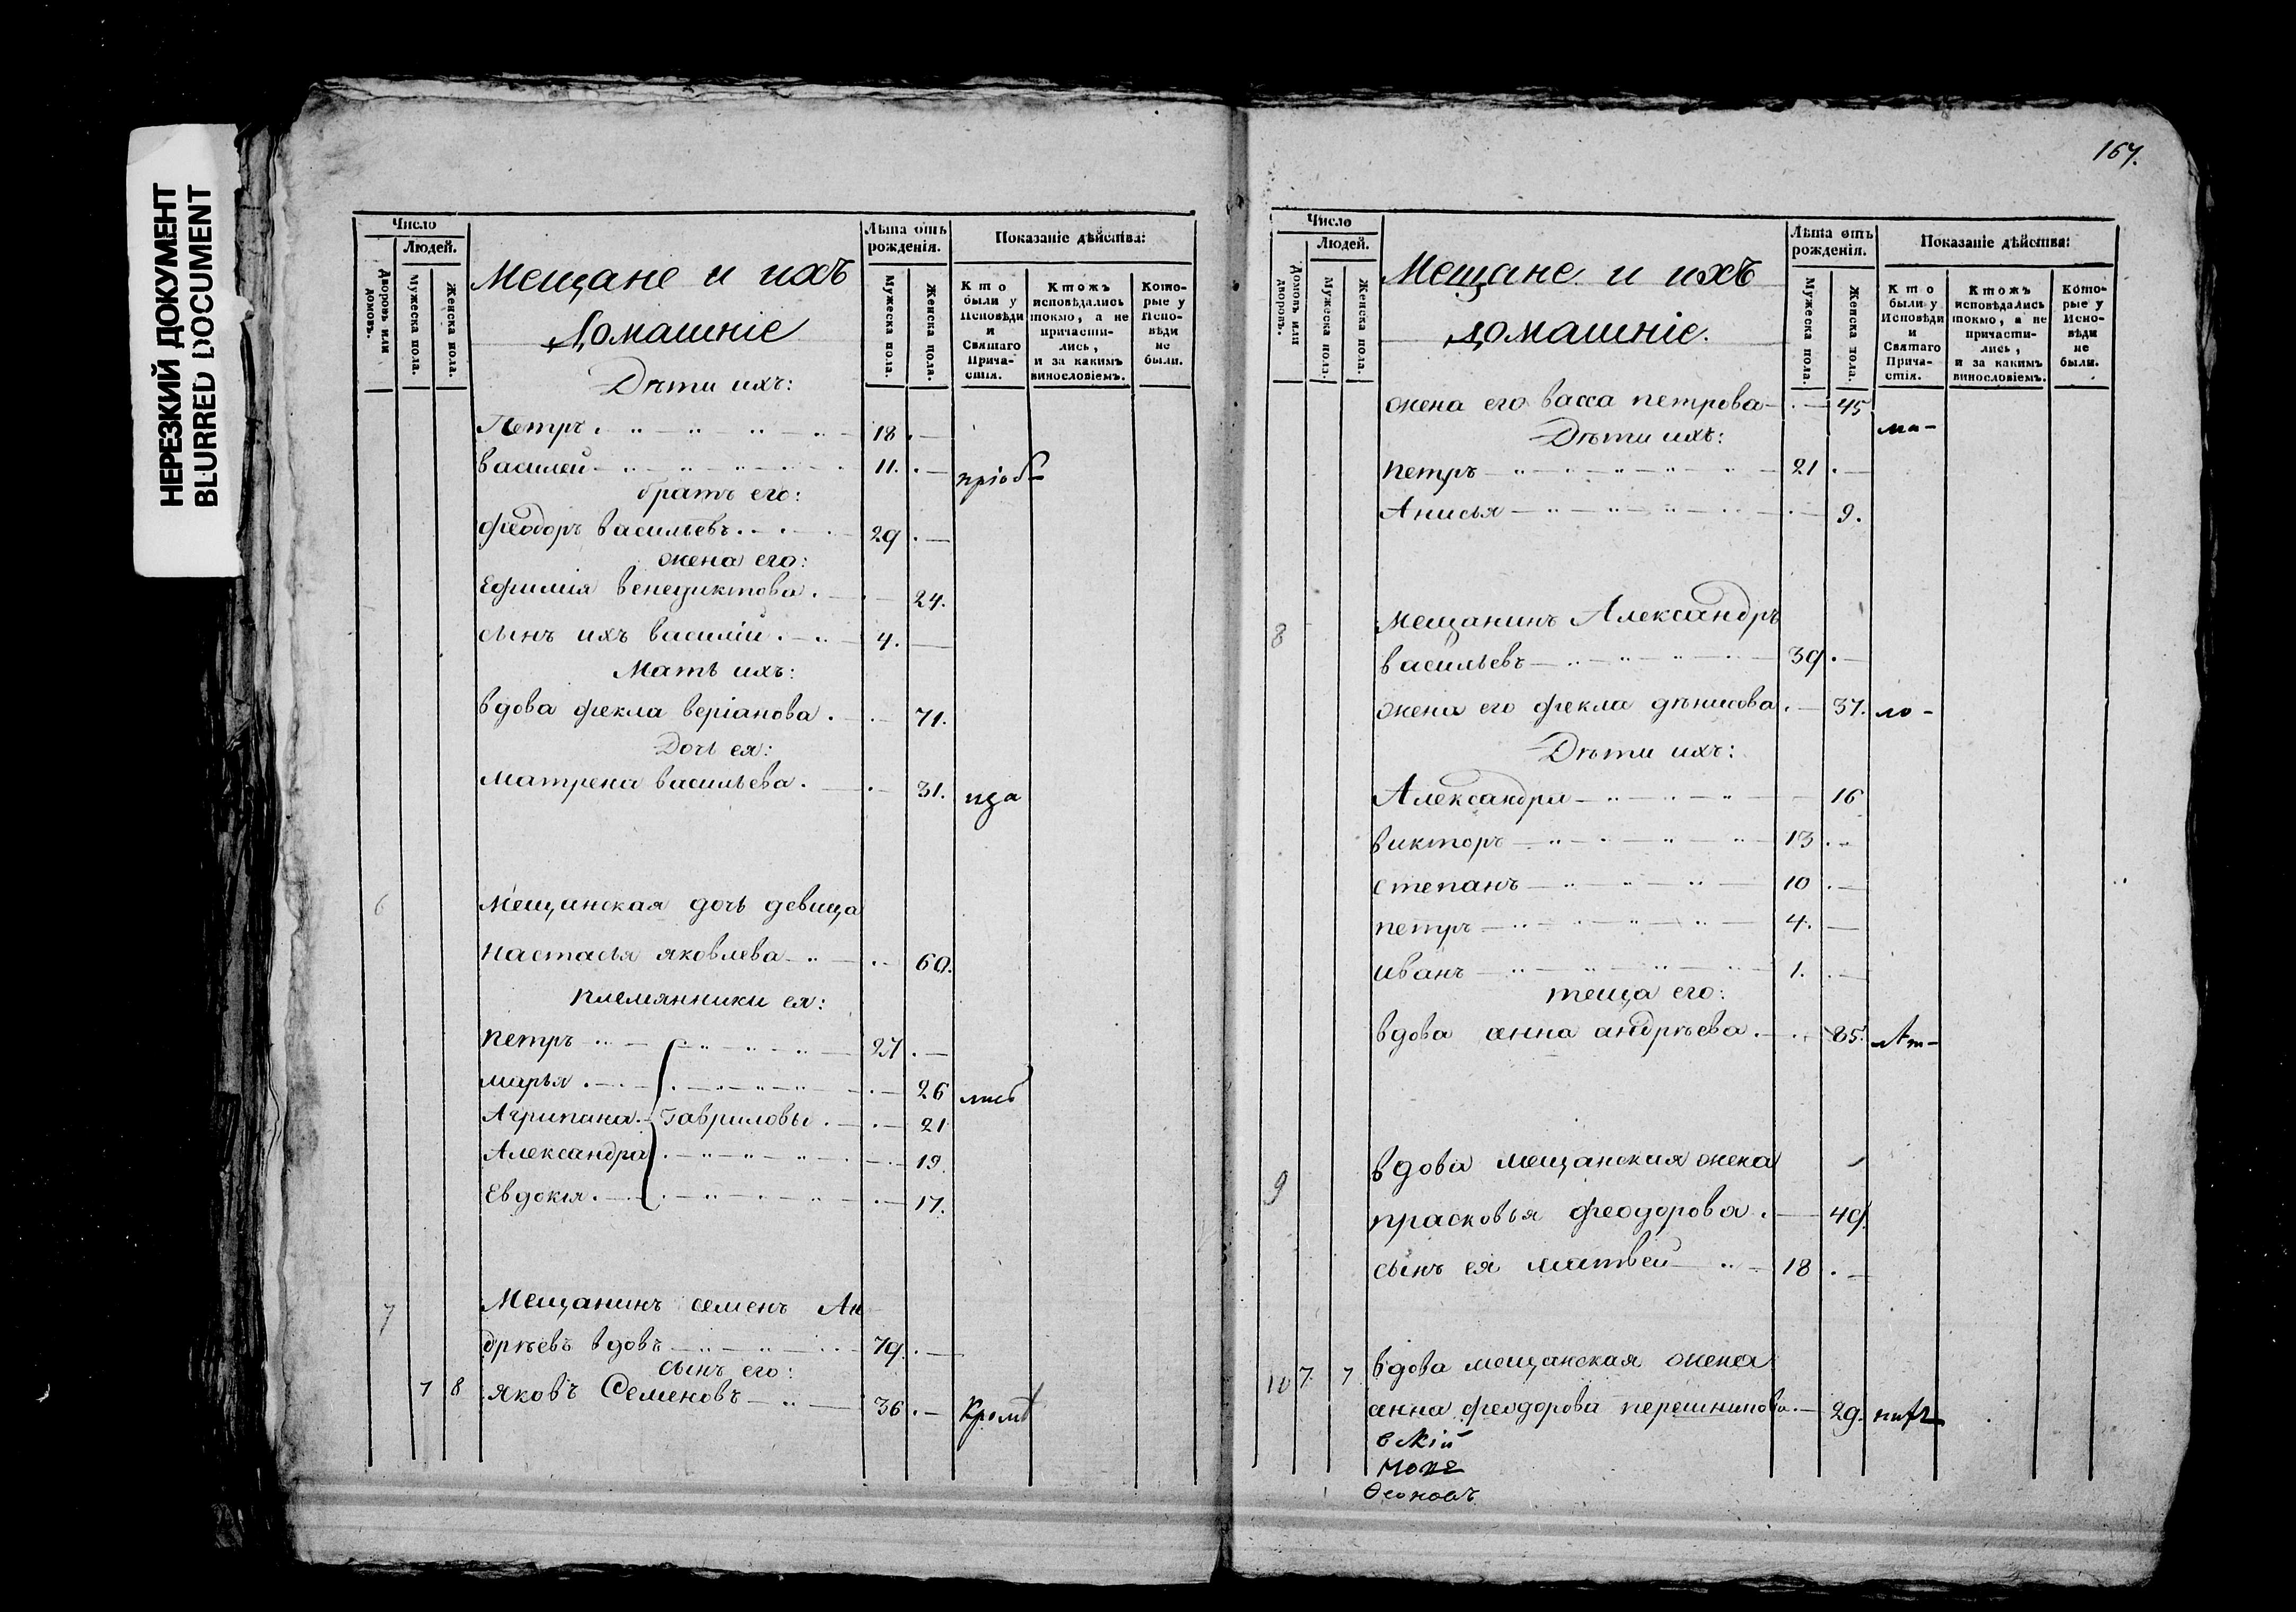 НЕРЕЗКИЙ ДОКУМЕНТ
BLURRED DOCUMENT
Число
Людей.
Дворовъ или домовъ.
Мужеска пола.
Женска пола.
Мещане и ихъ
Домашніе
Лѣта отъ рожденія.
Мужеска пола.
Женска пола.
Показаніе дѣйства:
Кто были у Исповѣди и Святаго Прича-стія.
Ктожъ исповѣдались токмо, а не причасти-лись, и за какимъ винословіемъ.
Кото-рые у Испо-вѣди не были.
Дѣти ихъ:
Петръ 18
василей 11. пріоб-
братъ его:
феодоръ васильевъ 29
жена его:
Ефимія венедиктова 24.
сынъ ихъ василій 4.
Мать ихъ:
вдова фекла веріанова 71.
Дочь ея:
матрена васильева 31.
6 Мещанская дочь девица
настасья яковлева 60.
племянники ея:
петръ 27
марья 26
Агрипана Гавриловы 21
Александра 19.
Евдокія 17.
7 Мещанинъ семенъ Ан
дрѣевъ вдовъ 79.
сынъ его:
7 8 яковъ Семеновъ 36
167.
Число
Людей.
Домовъ или дворовъ.
Мужеска пол.
Женска пола.
Мещане и ихъ
домашніе.
Лѣта отъ рожденія.
Мужеска пола.
Женска пола.
Показаніе дѣйства:
Кто были у Исповѣди и Святаго Прича-стія.
Ктожъ исповѣдались токмо, а не причасти-лись, и за какимъ винословіемъ.
Кото-рые у Испо-вѣди не были.
жена его васса петрова 45
Дѣти ихъ:
петръ 21
Анисья 9.
8 мещанинъ Александръ
васильевъ 39
жена его фекла дѣнисова 37.
Дѣти ихъ:
Александра 16
викторъ 13
степанъ 10
петръ 4.
иванъ 1.
теща его:
вдова анна андрѣева 85.
9 вдова мещанская жена
прасковья феодорова 49.
сынъ ея матвей 18
10 7 7 вдова мещанская жена
анна феодорова 29.